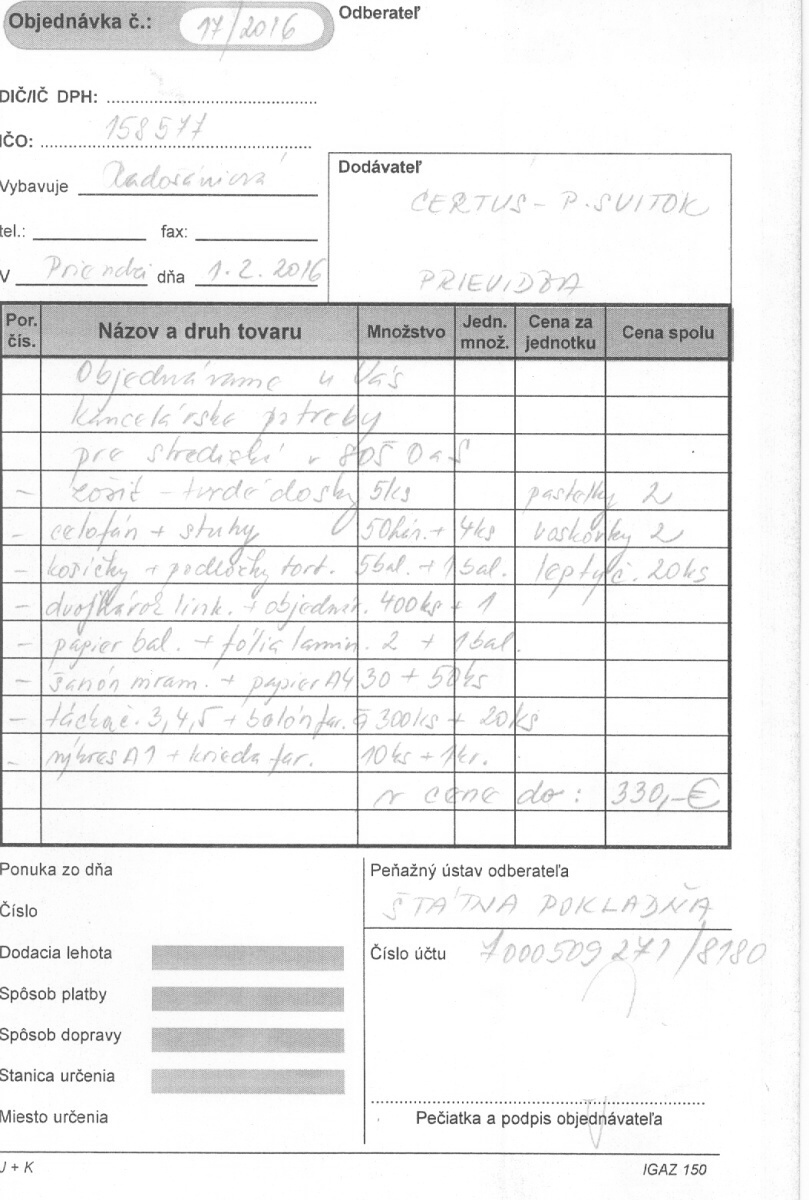 Objednávka č.: 17/2016
Odberateľ
DIČ/IČ DPH:
IČO: 158577
Vybavuje
Dodávateľ
CERTUS - P. SVITOK
PRIEVIDZA
tel.: fax:
V dňa 1.2.2016
Por. čís. Názov a druh tovaru Množstvo Jedn. množ. Cena za jednotku Cena spolu
Objednávame u Vás
kancelárske potreby
pre strediská v SOŠ OaS
- zošit - tvrdé dosky 5ks pastelky 2
- celofán + stuhy 50hár. + 4ks voskovky 2
- košíčky + podložky tort. 5bal. + 1bal. lepty č. 20ks
- dvojhárok link. + objednáv. 400ks + 1
- papier bal. + fólia lamin. 2 + 1bal.
- šanón mram. + papier A4 30 + 50ks
- č. 3,4,5 + balón far. á 300ks + 20ks
- výkres A1 + krieda far. 10ks + 1kr.
v cene do: 330,-€
Ponuka zo dňa
Číslo
Dodacia lehota
Spôsob platby
Spôsob dopravy
Stanica určenia
Miesto určenia
Peňažný ústav odberateľa
ŠTÁTNA POKLADŇA
Číslo účtu 7000509271/8180
Pečiatka a podpis objednávateľa
J + K
IGAZ 150